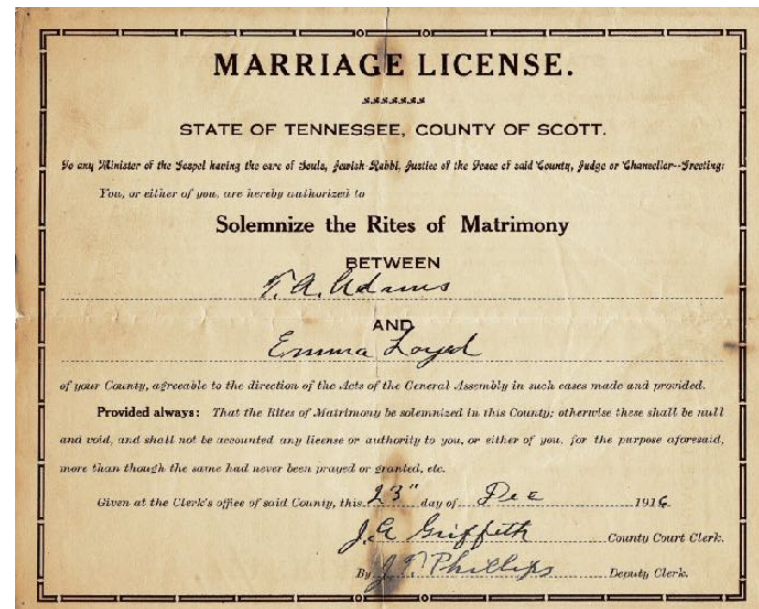 MARRIAGE LICENSE.
STATE OF TENNESSEE, COUNTY OF SCOTT.
To any Minister of the Gospel having the care of Souls, Jewish Rabbi, Justice of the Peace of said County, Judge or Chancellor--Greeting:
You, or either of you, are hereby authorized to
Solemnize the Rites of Matrimony
BETWEEN
T. A. Adams
AND
Emma Loyed
of your County, agreeable to the direction of the Acts of the General Assembly in such cases made and provided.
Provided always: That the Rites of Matrimony be solemnized in this County; otherwise these shall be null
and void, and shall not be accounted any license or authority to you, or either of you, for the purpose aforesaid,
more than though the same had never been prayed or granted, etc.
Given at the Clerk's office of said County, this 23" day of Dec 1916
J. A. Griffeth County Court Clerk.
By J. T. Phillips Deputy Clerk.